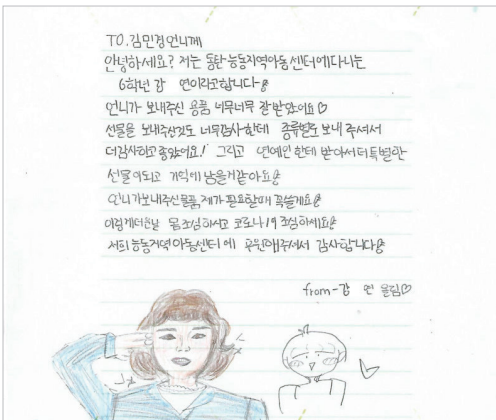 TO.김민경언니께
안녕하세요? 저는 동탄 능동지역아동센터에다니는
6학년 강 연이라고합니다
언니가 보내주신 용품 너무너무 잘받았어요♡
선물을 보내주신것도 너무감사한테 종류별로 보내 주셔서
더감사하고좋았어요! 그리고 연예인한테 받아서더특별한
선물이되고 기억에 남을거같아요
언니가보내주신물품 제가 필요할때 꼭쓸게요
이렇게더운날 몸조심하시고 코로나19 조심하세요
저희 능동지역아동센터에 후원해주셔서 감사합니다
from-강 연 올림♡